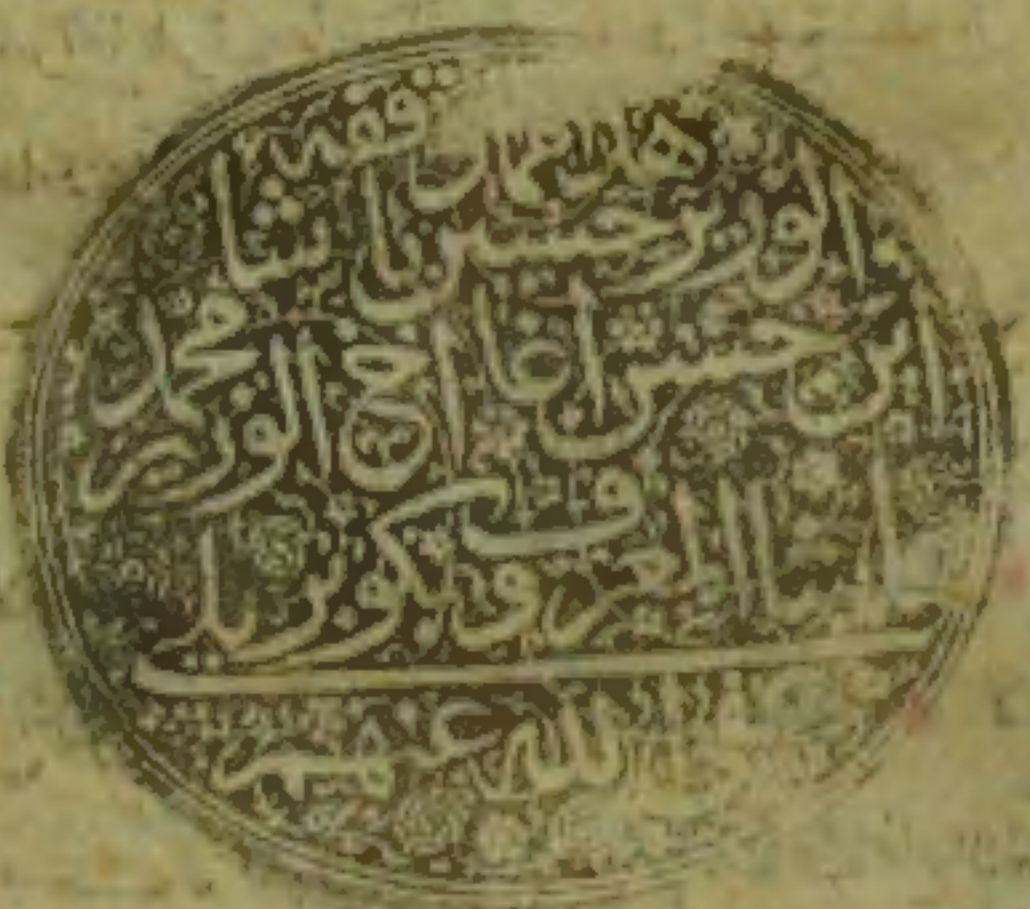 هذا مما وقفه
الوزير حسين باشا
ابن حسن اغا اخ الوزير محمد
باشا المعروف بكوپريلى
الله عنهم